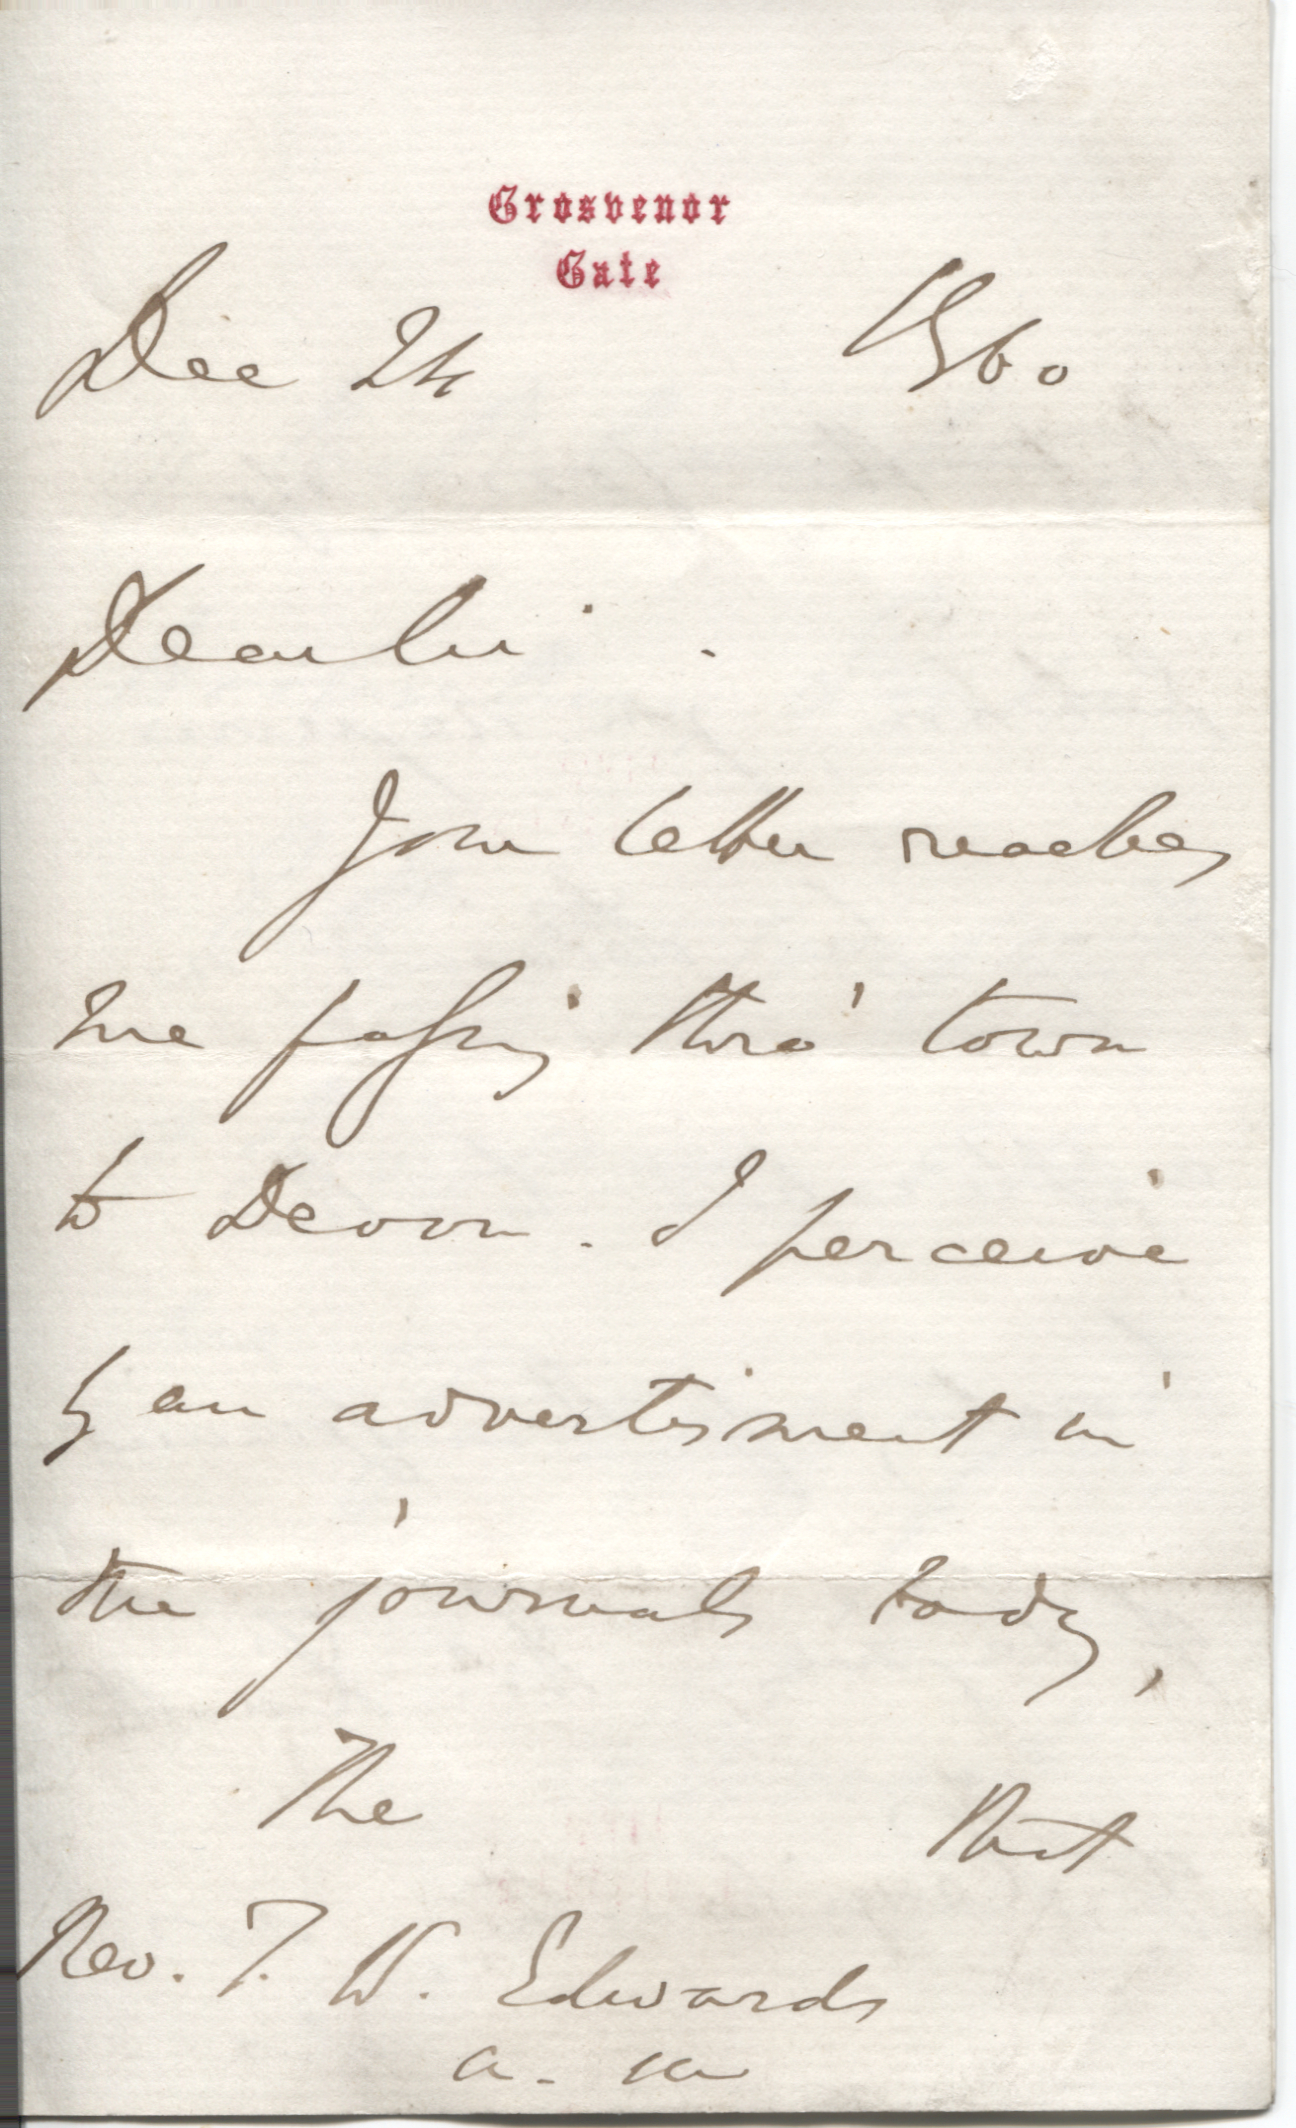 Grosvenor
Gate
Dec 24 1860
Dear Sir.
Your letter reaches
me passing thro' town
to Devon. I perceive
by an advertisment in
the journals today,
The that
Rev. T. W. Edwards
a. m